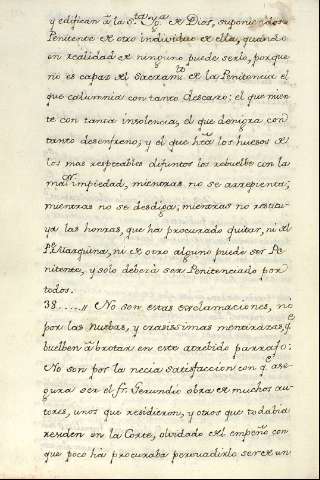 y edifican â la S.ta Yg.a de Dios, suponiendose
Penitente de otro individuo de ella, quando
en realidad de ninguno puede serlo, porque
no es capaz del Sacram.to de la Penitencia el
que calumnia con tanto descaro: el que mien
te con tanta insolencia, el que denigra con
tanto desenfreno; y el que hta los huesos de
los mas respetables difuntos los rebuelbe con la
maior impiedad, mientras no se arrepienta,
mientras no se desdiga, mientras no restitu-
ya las honras, que ha procurado quitar, ni del
P.e Marquina, ni de otro alguno puede ser Pe
nitente, y solo deberá ser Penitenciado por
todos.
38.....,, No son estas exclamaciones, no
por las nuebas, y crasissimas mentirazas, q.e
buelben â brotar en este atrebido parrafo:
No son por la necia satisfaccion con q.e ase-
gura ser el fr. Gerundio obra de muchos au-
tores, unos que residieron, y otros que todabia
residen en la Corte, olvidado del empeño con
que poco há procuraba persuadirlo ser de un